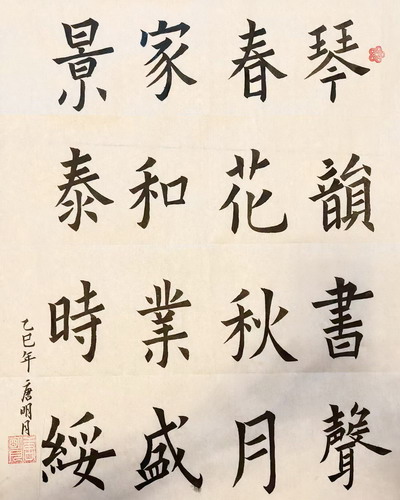 琴韻書聲
春花秋月
家和業盛
景泰時綏
乙巳年 唐明月